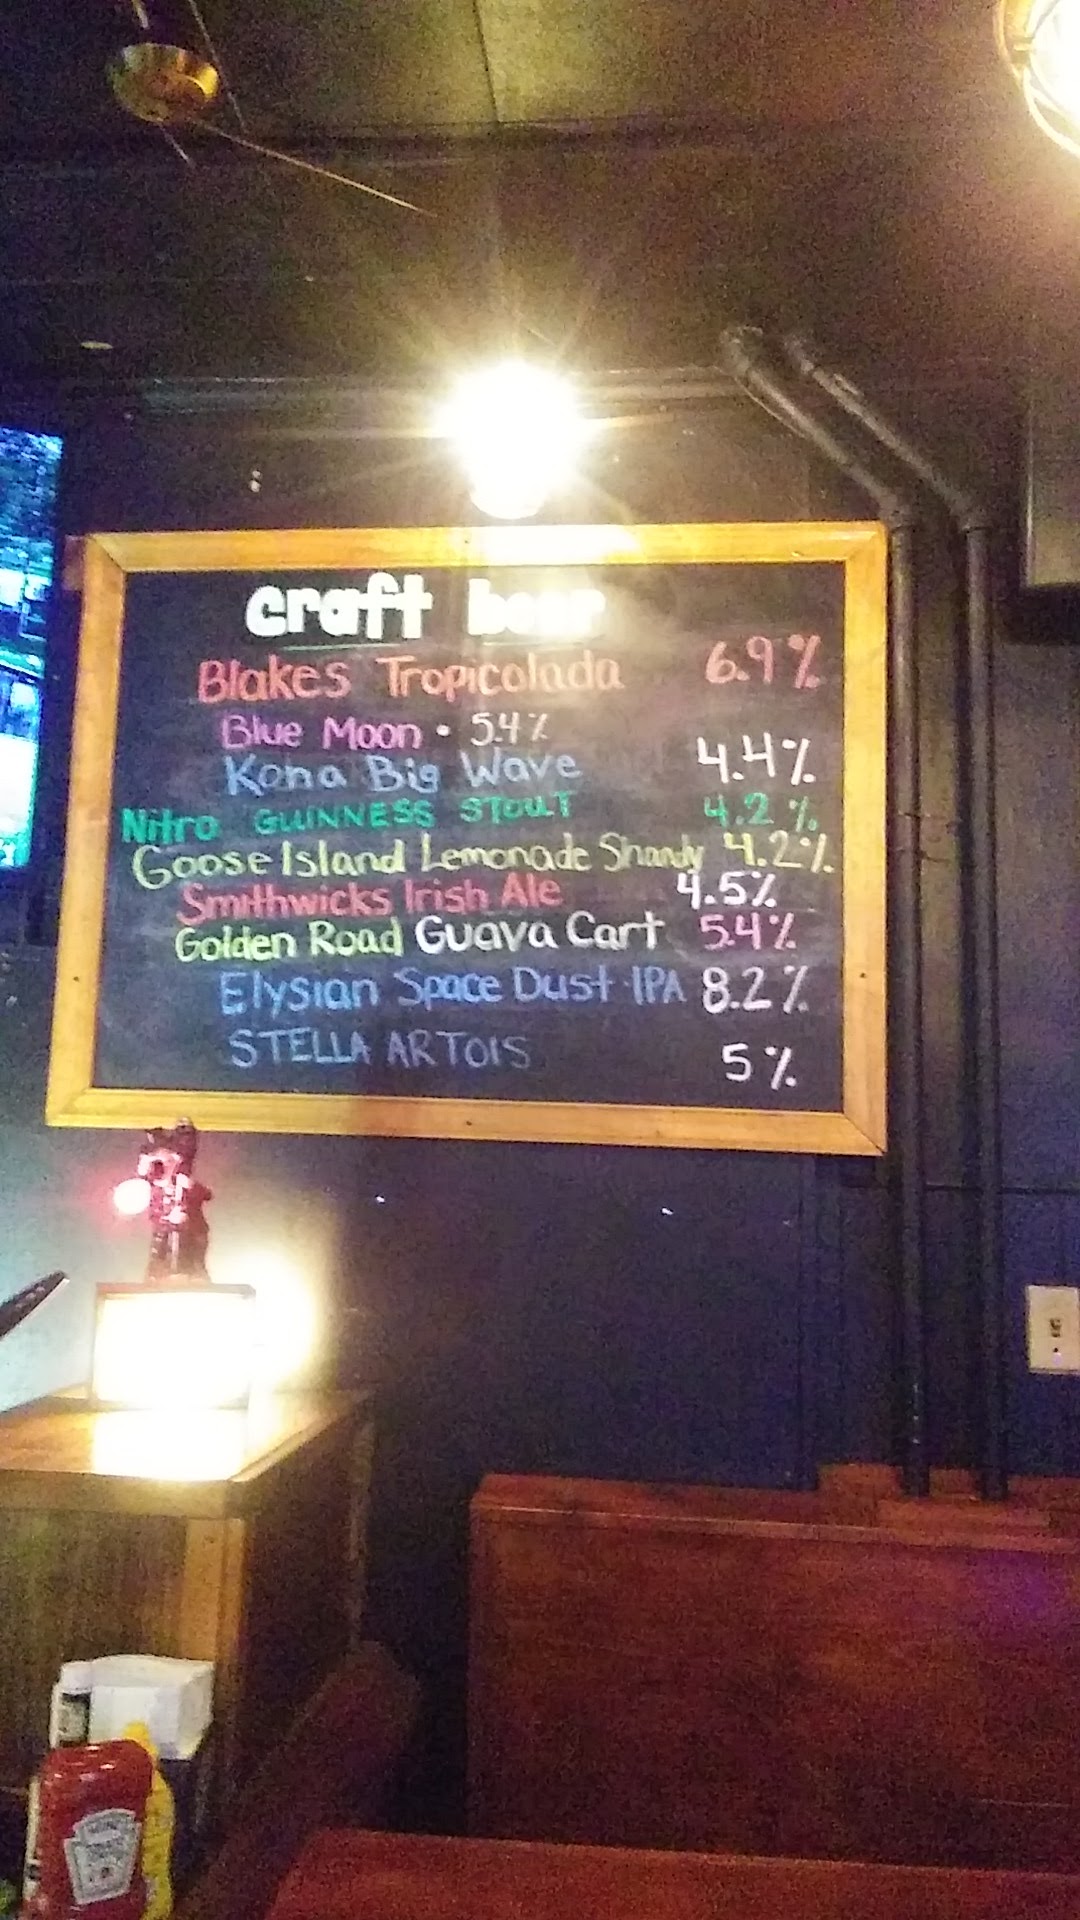 craft beer
Blakes Tropicolada 6.9%
Blue Moon • 5.4%
Kona Big Wave 4.4%
Nitro GUINNESS STOUT 4.2%
Goose Island Lemonade Shandy 4.2%
Smithwicks Irish Ale 4.5%
Golden Road Guava Cart 5.4%
Elysian Space Dust IPA 8.2%
STELLA ARTOIS 5%